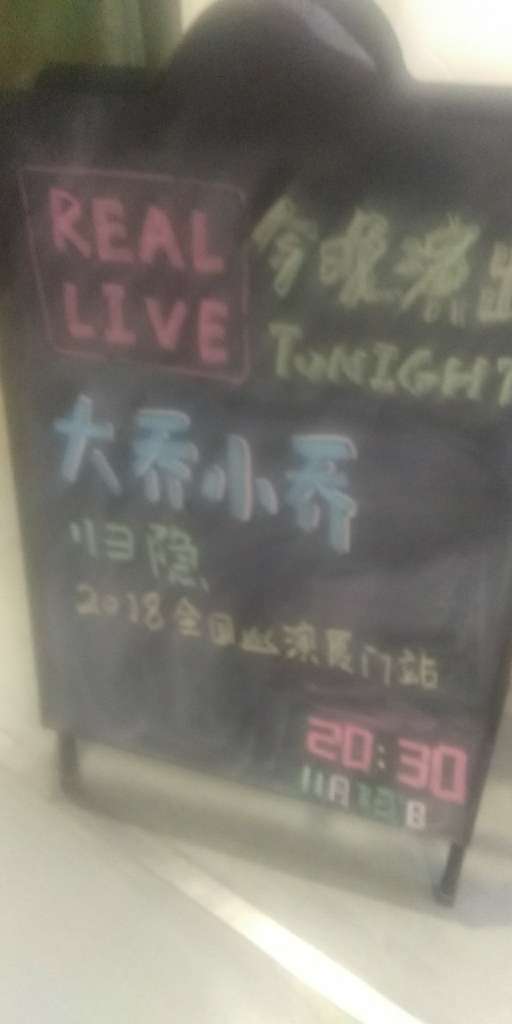 REAL
LIVE
今晚演出
TONIGHT
大乔小乔
归隐
2018全国巡演厦门站
20:30
11月 日